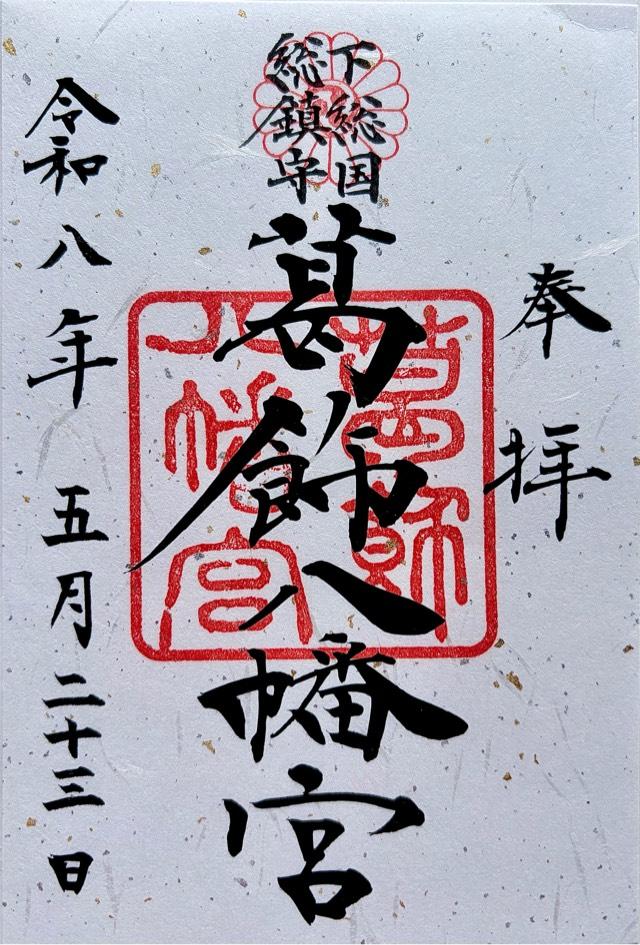 奉拝
下総国
総鎮守
葛飾八幡宮
葛飾
八幡宮
令和八年五月二十三日